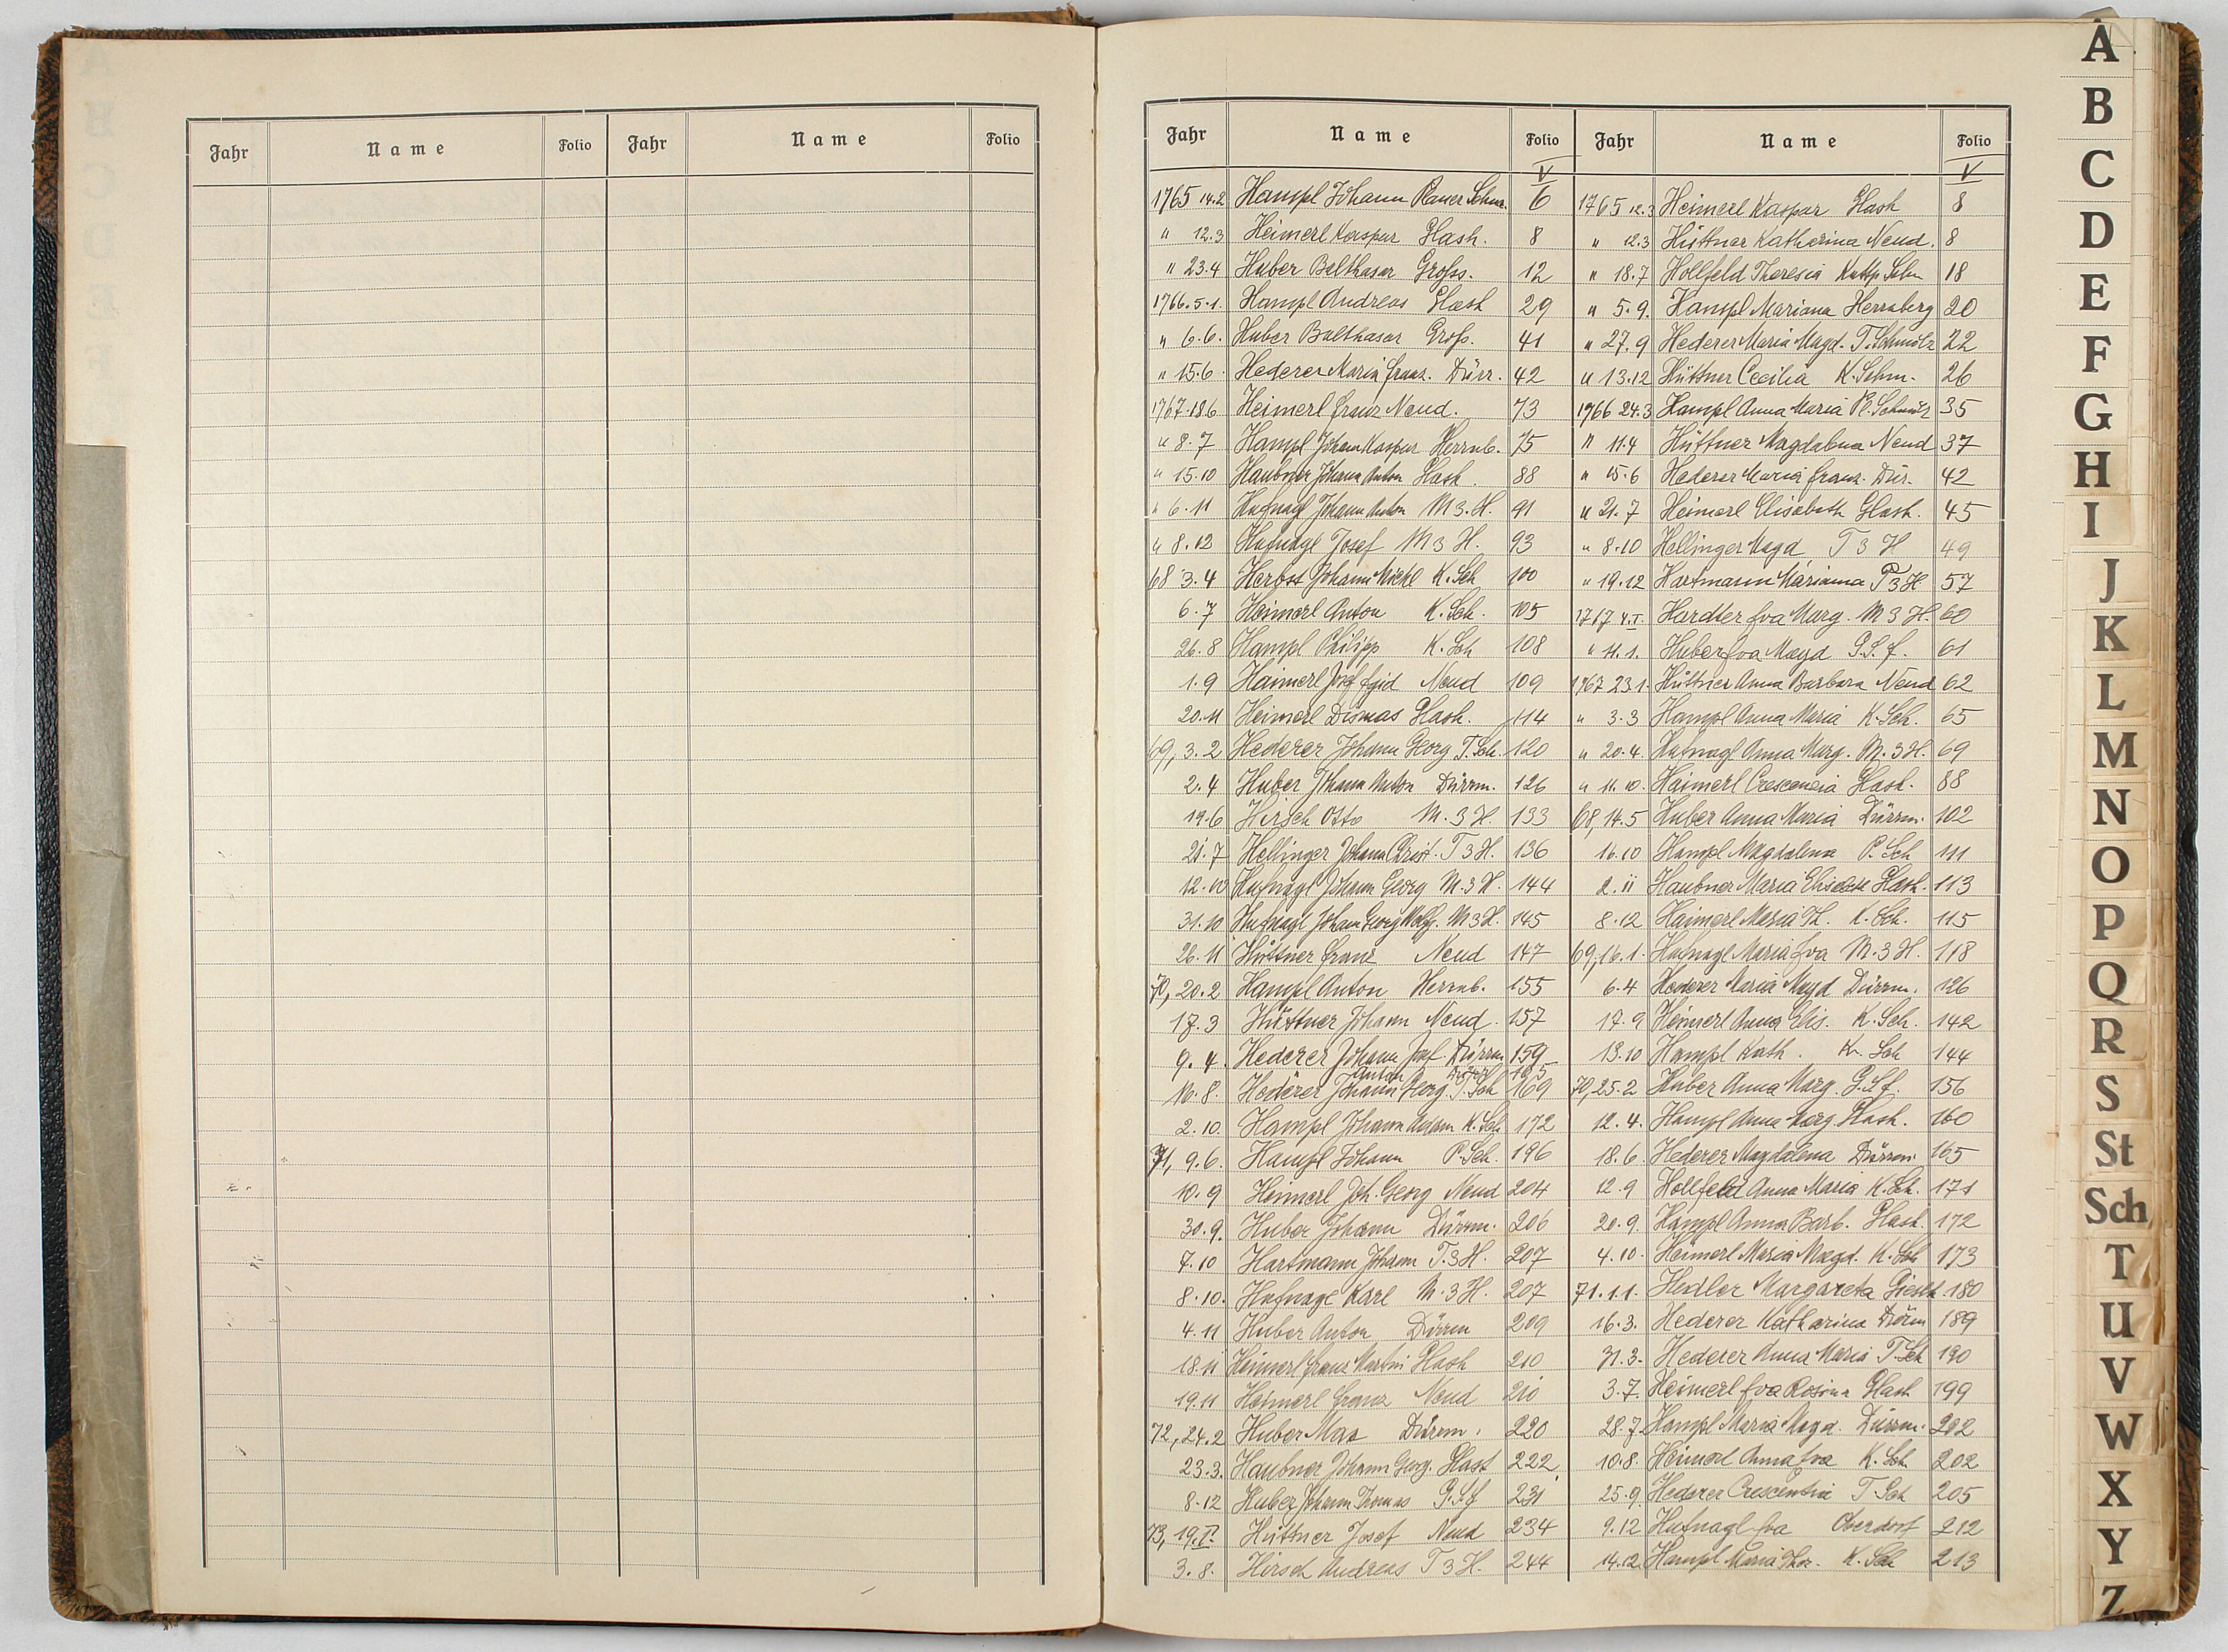 Jahr Name Folio Jahr Name Folio
Jahr Name Folio Jahr Name Folio
V V
1765 14.2 Hampl Johann Planer Schm. 6
" 12.3 Heimerl Kaspar Glash. 8
" 23.4 Huber Balthasar Grofss. 12
1766.5.1. Hampl Andreas Glash 29
" 6.6. Huber Balthasar Grofs. 41
" 15.6 Hederer Maria Franz. Dürr. 42
1767.18.6 Heimerl Franz Neud. 73
" 8.7 Hampl Johann Kaspar Herrnb. 75
" 15.10 Haubner Johann Anton Glash. 88
" 6.11 Hufnagl Johann Anton M 3. H. 91
" 8.12 Hufnagl Josef M 3 H. 93
68 3.4 Herbst Johann Michl K. Sch 100
6.7 Heimerl Anton K. Sch. 105
26.8 Hampl Philipp K. Sch 108
1.9 Haimerl Josef Egid Neud 109
20.11 Heimerl Dismas Glash. 114
69, 3.2 Hederer Johann Georg T. Sch. 120
2.4 Huber Johann Anton Dürrm. 126
19.6 Hirsch Otto M. 3 H. 133
21.7 Hellinger Johann Christ. T 3 H. 136
12.10 Hufnagl Johann Georg M. 3 H. 144
31.10 Hufnagl Johann Georg Wolfg. M 3 H. 145
26.11 Hüttner Franz Neud 147
70, 20.2 Hampl Anton Herrnb. 155
17.3 Hüttner Johann Neud. 157
9.4. Hederer Johann Josef Dürrm 159
Anton Dürrm 165
16.8. Hederer Johann Georg T. Sch 169
2.10. Hampl Johann Adam K. Sch 172
71, 9.6. Hampl Johann P. Sch. 196
10.9 Heimerl Joh. Georg Neud 204
30.9. Huber Johann Dürrm. 206
7.10 Hartmann Johann T. 3 H. 207
8.10. Hufnagl Karl M. 3 H. 207
4.11 Huber Anton Dürrm 209
18.11 Heimerl Franz Martin Glash 210
19.11 Heimerl Franz Neud 210
72, 24.2 Huber Max Dürrm. 220
23.3. Haubner Johann Georg. Glast 222
8.12 Huber Johann Thomas G. S. f 231
73, 19.I. Hüttner Josef Neud 234
3.8. Hirsch Andreas T 3 H. 244
1765 12.3 Heimerl Kaspar Glash 8
" 12.3 Hüttner Katherina Neud. 8
" 18.7 Hollfeld Theresia Schm 18
" 5.9. Hampl Mariana Herrnberg 20
" 27.9 Hederer Maria Magd. T. Schmölz 22
" 13.12 Hüttner Cecilia K. Schm. 26
1766 24.3 Hampl Anna Maria Pl. Schmölz 35
" 11.4 Hüttner Magdalena Neud 37
" 15.6 Hederer Maria Franz. Dür. 42
" 21.7 Heimerl Elisabeth Glash. 45
" 8.10 Hellinger Magd T 3 H 49
" 19.12 Hartmann Marianna T 3 H 57
1767 4.I. Hardter Eva Marg. M 3 H. 60
" 11.1. Huber Eva Magd G. S. f. 61
1767 23.1. Hüttner Anna Barbara Neud 62
" 3.3 Hampl Anna Maria K. Sch. 65
" 20.4. Hufnagl Anna Marg. M. 3 H. 69
" 11.10. Haimerl Crescencia Glash. 88
68, 14.5 Huber Anna Maria Dürrm. 102
16.10 Hampl Magdalena P. Sch 111
2.11 Haubner Maria Glash. 113
8.12 Haimerl Maria Th. K. Sch. 115
69, 16.1. Hufnagl Maria Eva M. 3 H. 118
6.4 Hederer Maria Magd Dürrm. 126
17.9 Heimerl Anna Elis. K. Sch. 142
13.10 Hampl Kath. K. Sch 144
70, 25.2 Huber Anna Marg. G. S f. 156
12.4. Hampl Anna Marg. Glash. 160
18.6. Hederer Magdalena Dürrm. 165
12.9 Hollfeld Anna Maria K. Sch. 171
20.9. Hampl Anna Barb. Glash. 172
4.10. Heimerl Maria Magd. K. Sch 173
71. 1.1. Hedler Margareta 180
16.3. Hederer Katharina Dürm 189
31.3. Hederer Anna Maria T. Sch 190
3.7. Heimerl Eva Rosina Glash 199
28.7. Hampl Maria Magd. Dürrm. 202
10.8. Heimerl Anna Eva K. Sch 202
25.9. Hederer Crescentia T Sch 205
9.12 Hufnagl Eva Oberdorf 212
14.12. Hampl Maria Ther. K. Sch 213
A
B
C
D
E
F
G
H
I
J
K
L
M
N
O
P
Q
R
S
St
Sch
T
U
V
W
X
Y
Z